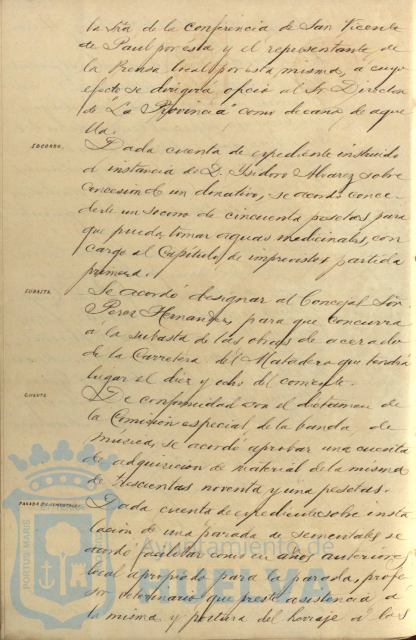 la Sra de la Conferencia de San Vicente
de Paul por esta y el representante de
la Prensa local por esta misma, á cuyo
efecto se dirigirá oficio al Sr Director
de "La Provincia" como decano de aque
lla.
SOCORRO.
Dada cuenta de expediente instruido
á instancia de D. Isidoro Alvarez sobre
concesión de un donativo, se acordó conce-
derle un socorro de cincuenta pesetas para
que pueda tomar aguas medicinales, con
cargo al Capítulo de imprevistos partida
primera.
SUBASTA.
Se acordó designar al Concejal Sor
Perez Hernandez, para que concurra
á la subasta de las obras de acerado
de la Carretera del Matadero que tendrá
lugar el diez y ocho del corriente.
CUENTA
De conformidad con el dictamen de
la Comisión especial de la banda de
musica, se acordó aprobar una cuenta
de adquisicion de material de la misma
de noventa y una pesetas.
PARADA DE SEMENTALES
Dada cuenta de expediente sobre insta
lación de una parada de sementales se
acordó facilitar como en años anteriores
local apropiado para la parada, profe
sor veterinario que preste asistencia á
la misma y postura del herraje á los
PORTUS MARIS
Ayuntamiento de
HUELVA